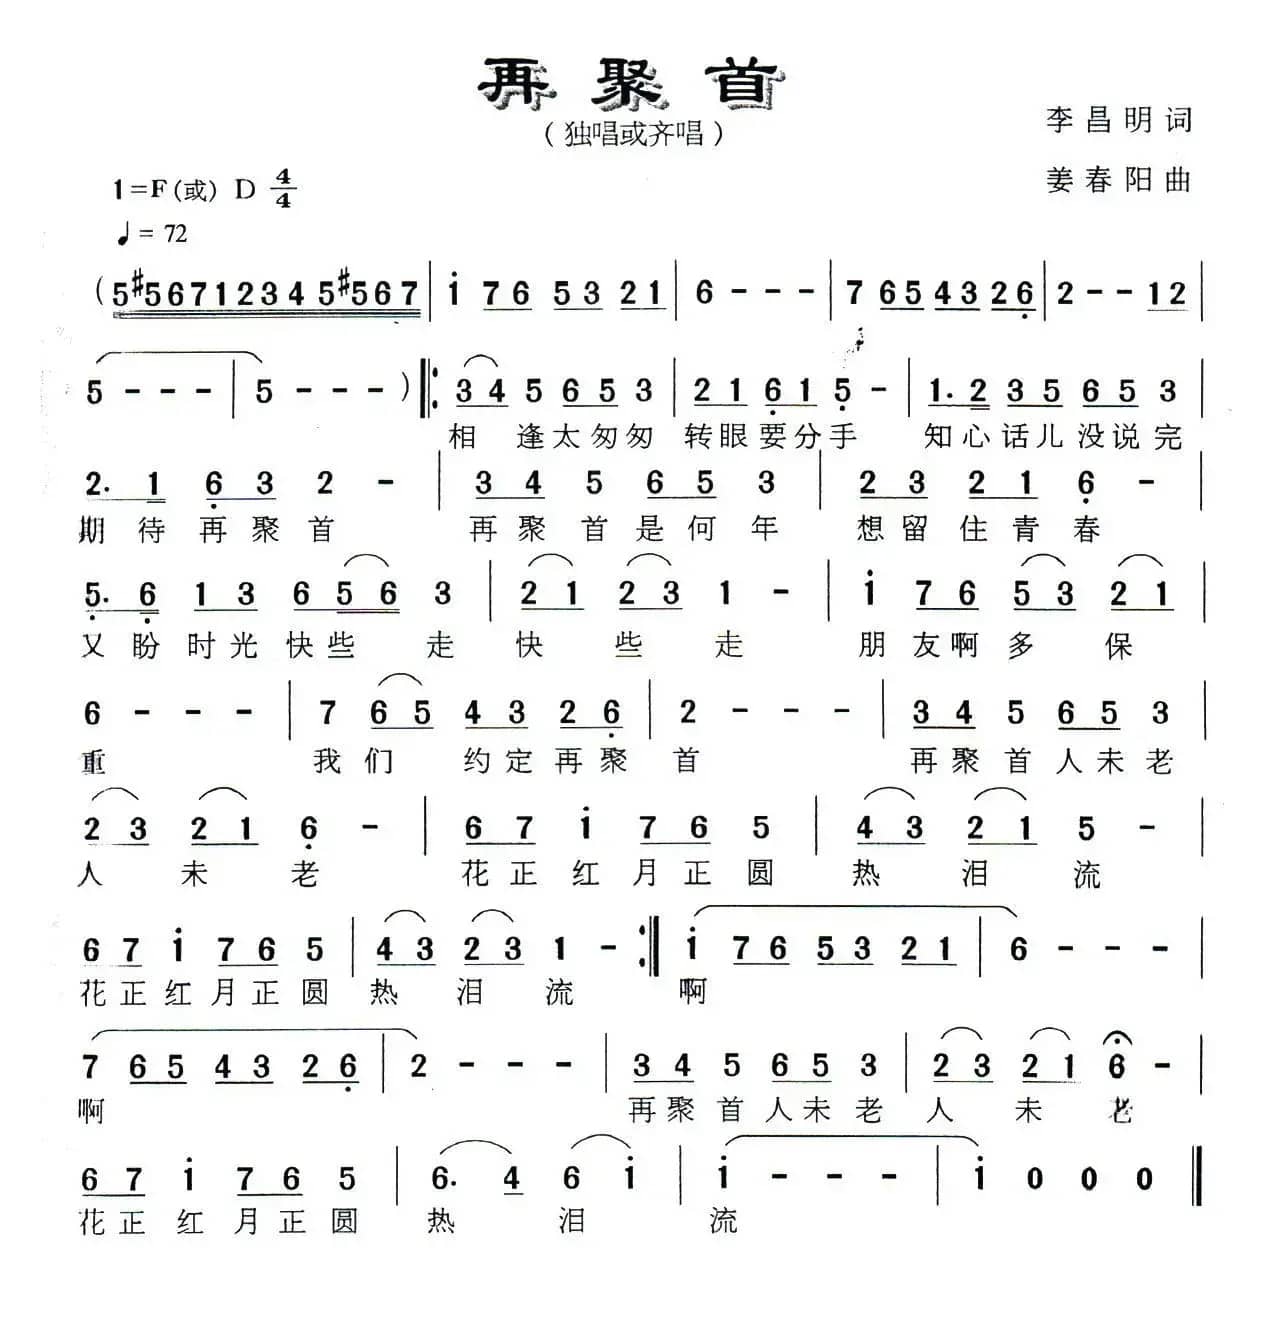 再聚首
（独唱或齐唱）
李昌明词
姜春阳曲
1=F(或) D 4/4
♩= 72
(5#56712345#567 | i 76 53 21 | 6 - - - | 7 65 43 26 | 2 - - 12 |
5 - - - | 5 - - - ) |: 34 5 65 3 | 21 61 5 - | 1. 2 35 65 3 |
相逢太匆匆 转眼要分手 知心话儿没说完
2. 1 63 2 - | 34 5 65 3 | 23 21 6 - |
期待再聚首 再聚首是何年 想留住青春
5. 6 13 656 3 | 21 23 1 - | i 76 53 21 |
又盼时光快些走快些走 朋友啊多保
6 - - - | 7 65 43 26 | 2 - - - | 34 5 65 3 |
重 我们约定再聚首 再聚首人未老
23 21 6 - | 67 i 76 5 | 43 21 5 - |
人未老 花正红月正圆 热泪流
67 i 76 5 | 43 23 1 - :| i 76 53 21 | 6 - - - |
花正红月正圆 热泪流 啊
7 65 43 26 | 2 - - - | 34 5 65 3 | 23 21 6 - |
啊 再聚首人未老 人未老
67 i 76 5 | 6. 4 6 i | i - - - | i 0 0 0 ||
花正红月正圆 热泪流